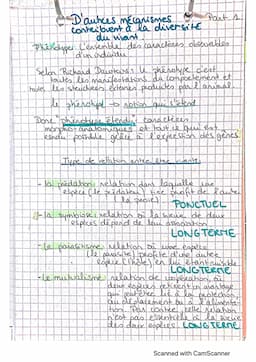 D'autres mécanismes Part. 1
contribuent à la diversité
du vivant.
Phénotype: L'ensemble des caractères observables
d'un individu
Selon Richard Dawkins: le phénotype c'est
toutes les manifestations du comportement et
toutes les structures externes produites par l'animal.
le phénotype → notion qui s'étend
Donc "phénotype étendu": caractères
morpho-anatomiques et tout ce qui est
rendu possible grâce à l'expression des gènes
Type de relation entre être vivants
- la prédation: relation dans laquelle une
espèce (le prédateur) tire profit de l'autre
(la proie) PONCTUEL
- la symbiose: relation où la survie de deux
espèces dépend de leur association
LONG TERME
- le parasitisme: relation où une espèce
(le parasite) profite d'une autre
espèce (l'hôte) en lui étant nuisible
LONG TERME
- le mutualisme: relation de coopération où
deux espèces retirent un avantage
lié à la protection
au déplacement ou à l'alimenta-
tion. Par contre, cette relation
n'est pas essentielle à la survie
des deux espèces LONG TERME
Scanned with CamScanner